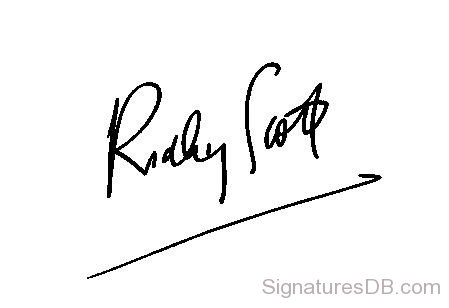 Ridley Scott
SignaturesDB.com